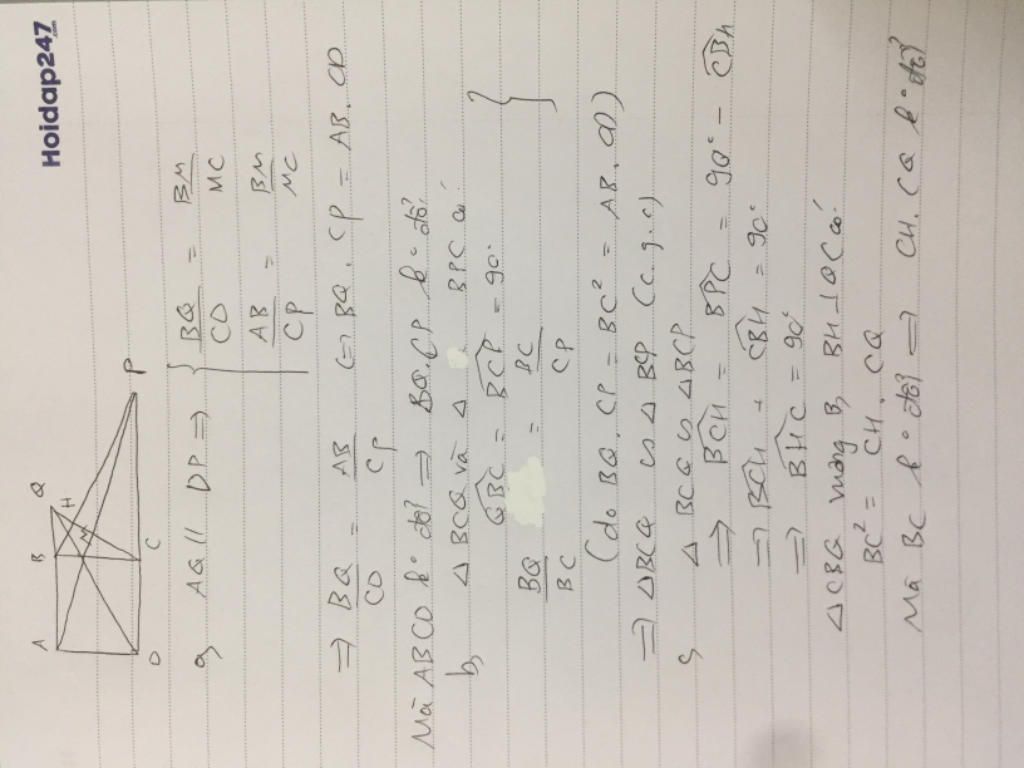 Hoidap247
A B Q
H
M
D C P
a, AQ // DP => { BQ/CD = BM/MC
AB/CP = BM/MC
=> BQ/CD = AB/CP <=> BQ. CP = AB. CD
Mà ABCD k° đổi => BQ.CP k° đổi
b, Δ BCQ và Δ BPC có: }
QBC = BCP = 90°
BQ/BC = BC/CP
(do BQ. CP = BC² = AB. CD)
=> ΔBCQ ᔕ Δ BCP (c.g.c)
c, Δ BCQ ᔕ Δ BCP
=> BCH = BPC = 90° - CBH
=> BCH + CBH = 90°
=> BHC = 90°
ΔCBQ vuông B, BH ⊥ QC có:
BC² = CH. CQ
Mà BC k° đổi => CH. CQ k° đổi